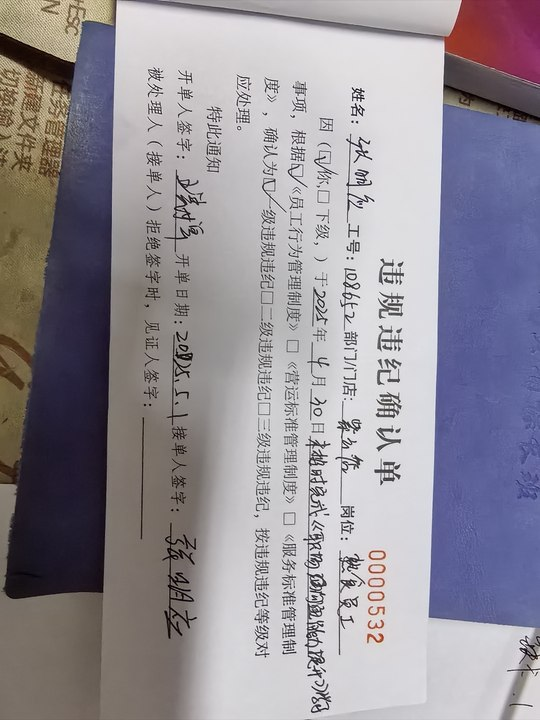 违规违纪确认单
0000532
姓名：张明 工号：108652 部门/门店： 岗位：熟食员工
因（☑你，☐下级，）于2025年4月30日未按时完成《职场 力提升》
事项，根据☑《员工行为管理制度》☐《营运标准管理制度》☐《服务标准管理制
度》，确认为☑一级违规违纪☐二级违规违纪☐三级违规违纪，按违规违纪等级对
应处理。
特此通知
开单人签字： 开单日期：2025.5.1 接单人签字：张明
被处理人（接单人）拒绝签字时，见证人签字：
Esc
任务管理器
新建文件夹
切换输入
班